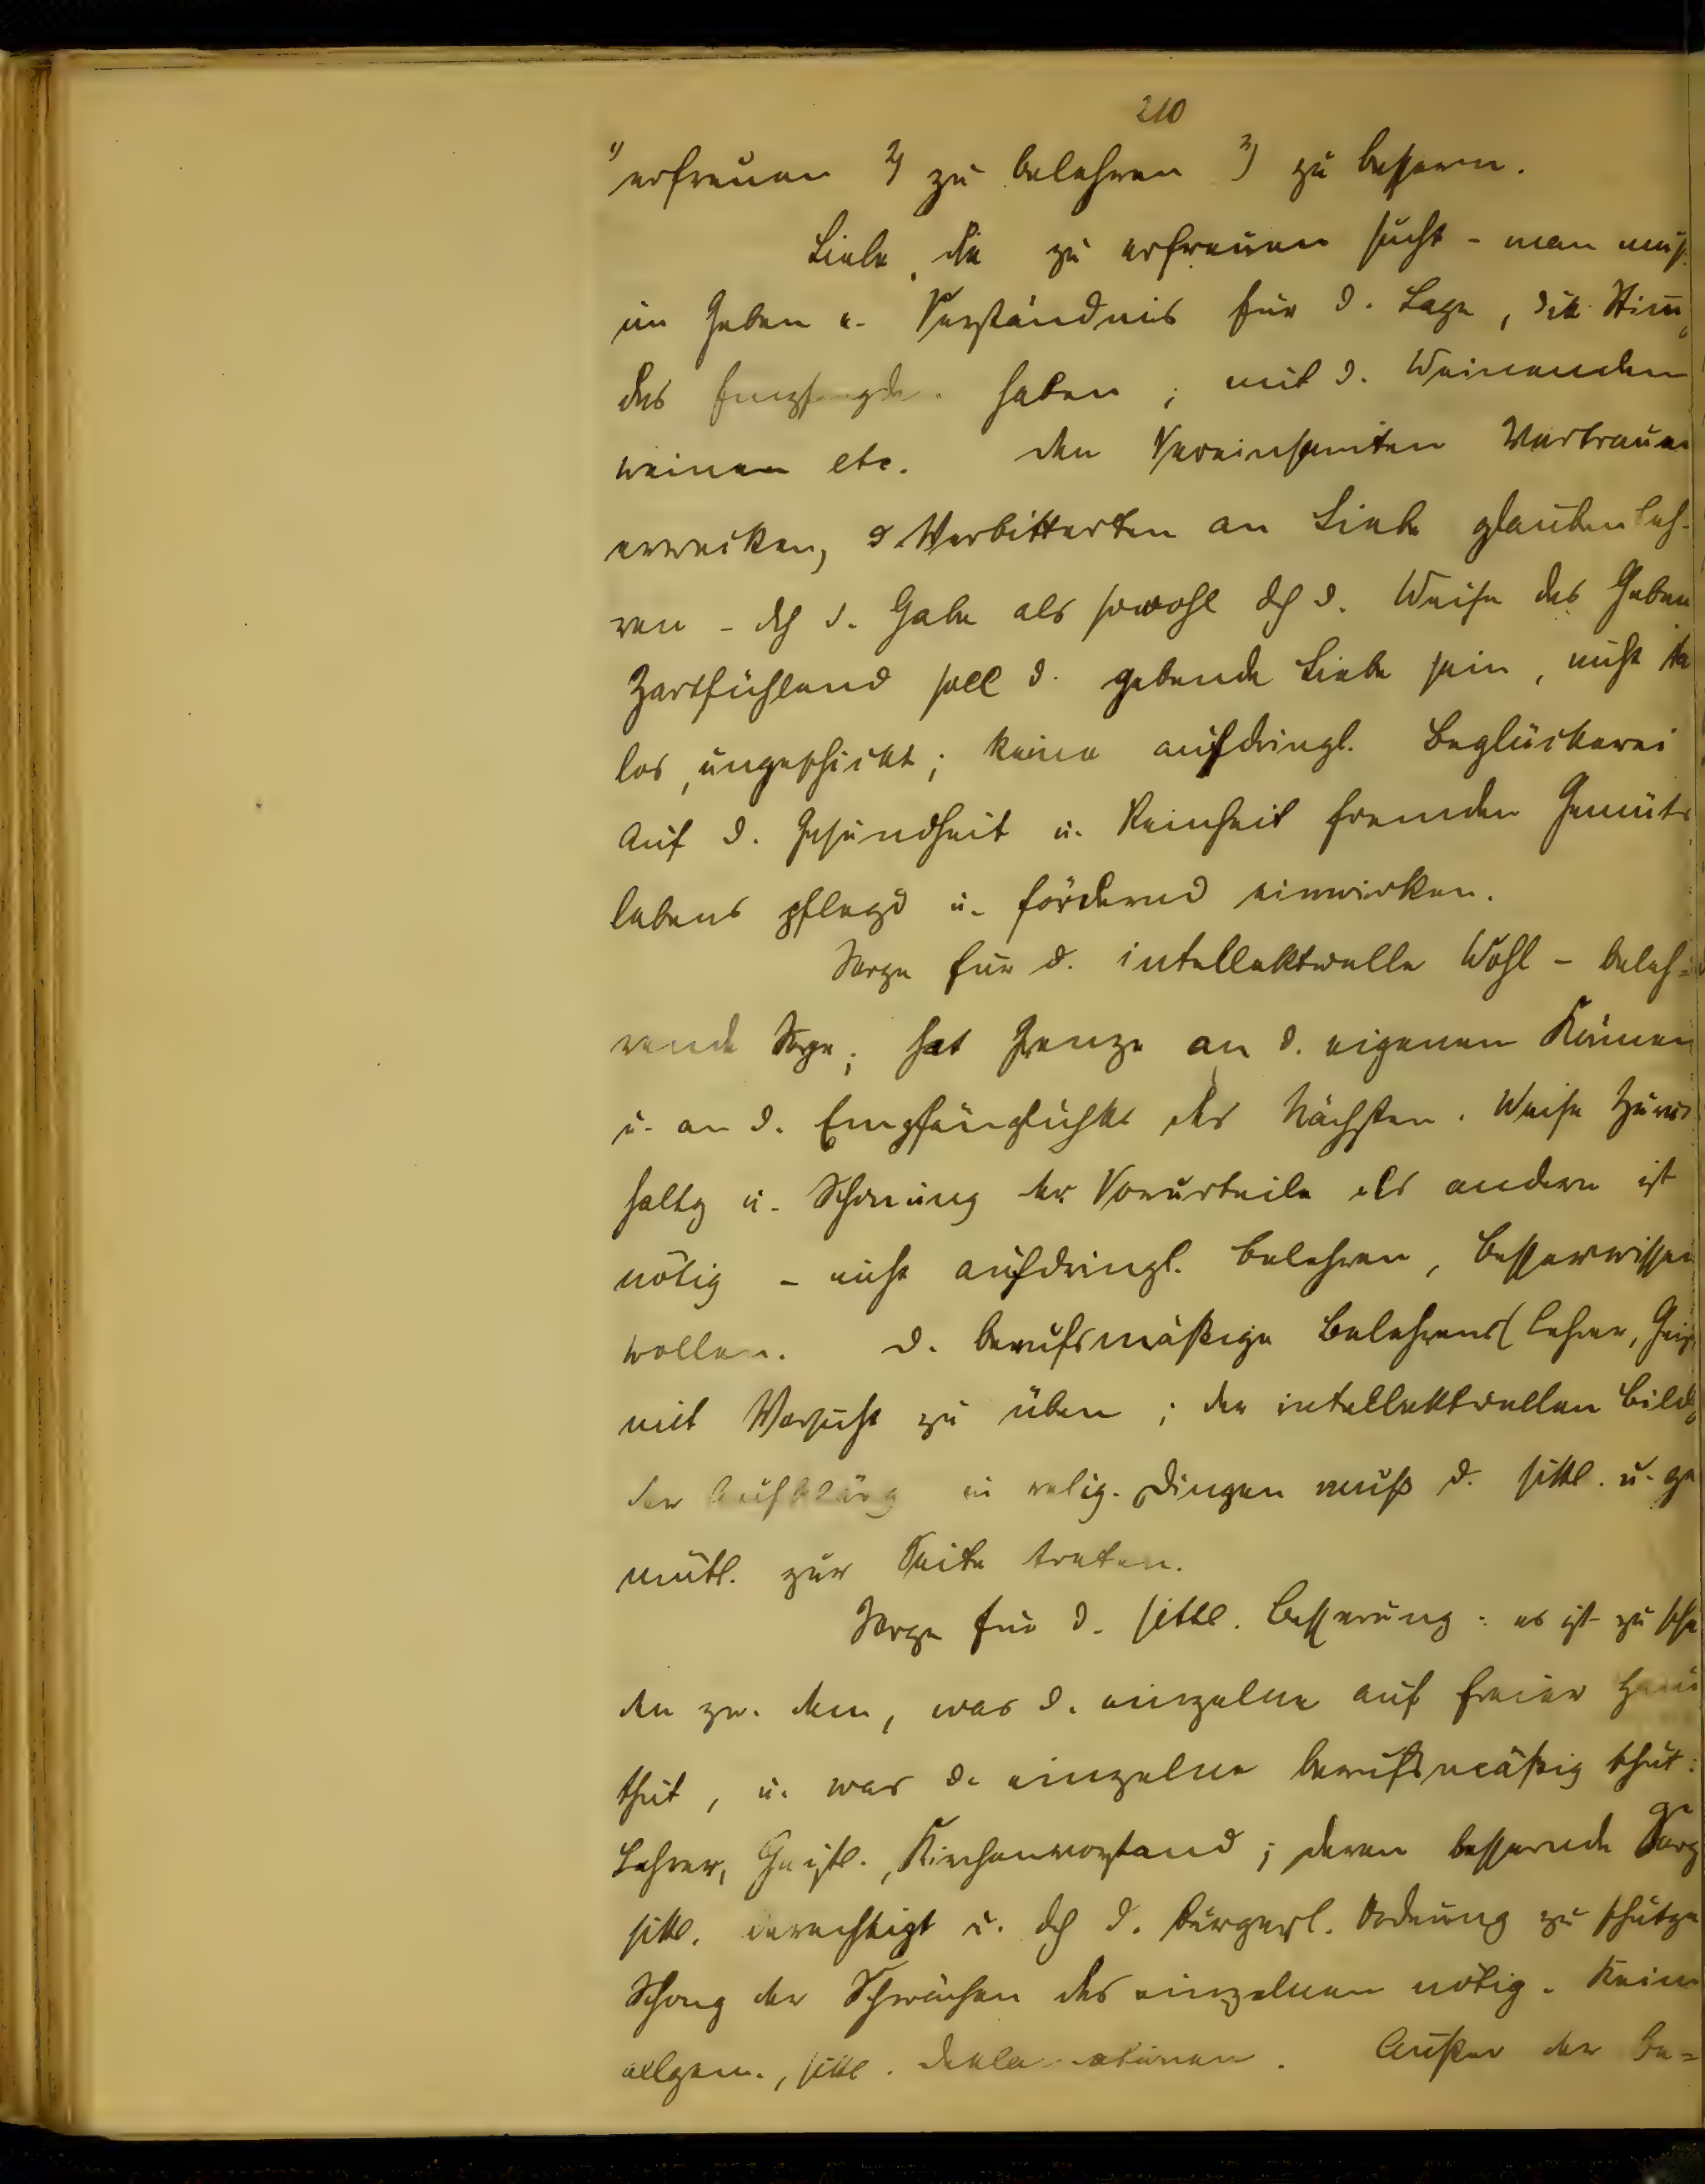 210
1) erfreuen 2) zu belehren 3) zu bessern.
Liebe, die zu erfreuen sucht - man muß
im Geben u. Verständnis für d. Lage, die
des haben; mit d. Weinenden
weinen etc. den Vereinsamten Vertrauen
erwecken, d. Verbitterten an Liebe glauben leh-
ren - dch d. Gabe als sowohl dch d. Weise des Geben
Zartfühlend soll d. gebende Liebe sein, nicht
los, ungeschickt; keine aufdringl. Beglückerei
Auf d. Gesundheit u. Reinheit fremden Gemüts
lebens pflegd u. fördernd einwirken.
Sorge für d. intellektuelle Wohl - beleh=
rende Sorge; hat Grenze an d. eigenen Können
u. an d. Empfänglichkt des Nächsten. Weise Zurück
haltg u. Schonung der Vorurteile des andern ist
nötig - nicht aufdringl. belehren, besserwissen
wollen. D. berufsmäßige Belehrens (Lehrer, Geistl
mit Vorsicht zu üben; der intellektuellen Bildg
der Aufklärg in relig. Dingen muß d. sittl. u. ge
mütl. zur Seite treten.
Sorge für d. sittl. Besserung: es ist zu schei
den zw. dem, was d. einzelne auf freier Hand
thut, u. was d. einzelne berufsmäßig thut:
Lehrer, Geistl., Kirchenvorstand; deren bessernde Sorge
sittl. berechtigt u. dch d. bürgerl. Ordnung zu schütze
Schong der Schwächen des einzelnen nötig. Keine
allgem., sittl. Deklamationen. Außer der Be=